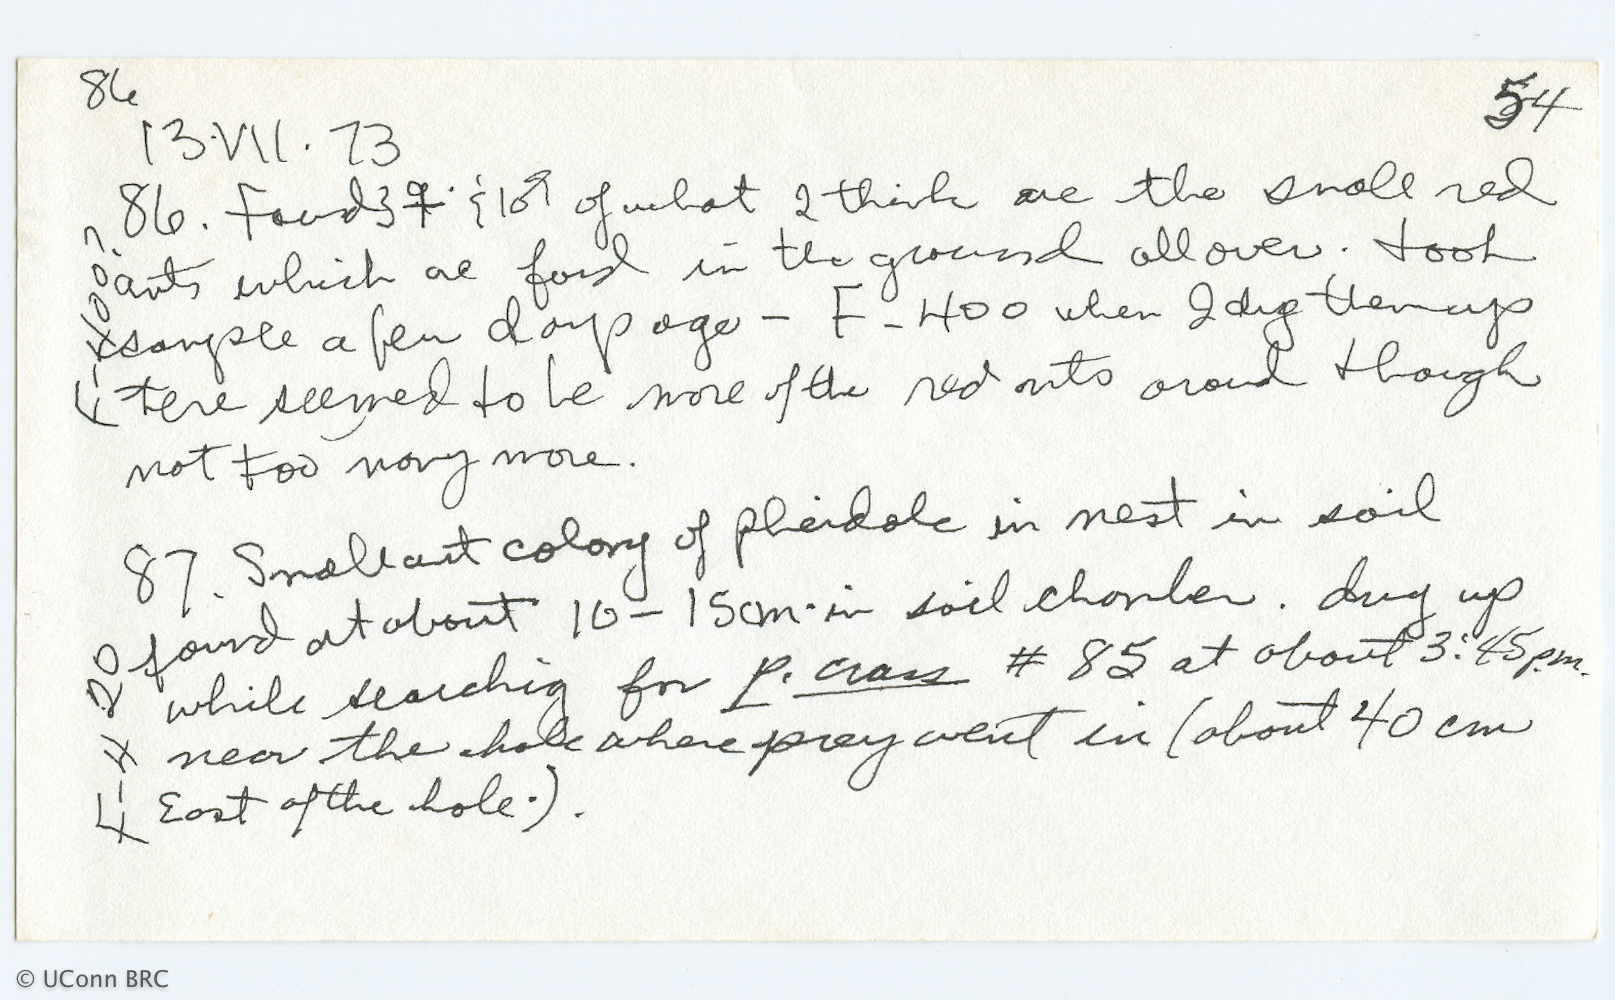 86
54
13·VII·73
86. Found 3 ♀ & 10 of what I think are the small red
ants which are foud in the ground all over. took
sample a few days ago – F-400 when I dug them up
tere seemed to be more of the red ants aroud though
not too many more.
F-400?
87. Small ant colony of pheidole in nest in soil
found at about 10–15cm· in soil chamber. dug up
while searching for P. crass # 85 at about 3:45p.m.
near the hole where prey went in (about 40 cm
East of the hole·).
20
© UConn BRC